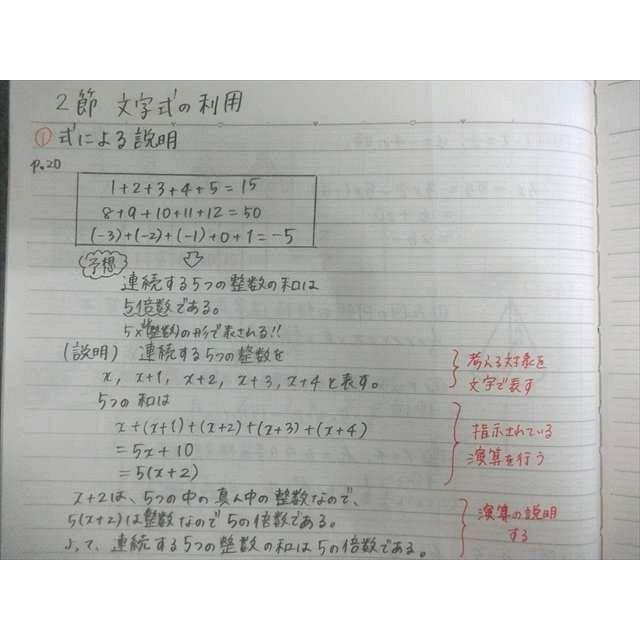 2節 文字式の利用
① 式による説明
P.20
1+2+3+4+5=15
8+9+10+11+12=50
(-3)+(-2)+(-1)+0+1=-5
予想
連続する5つの整数の和は
5倍数である。
5×(整数)の形で表される!!
(説明) 連続する5つの整数を
x, x+1, x+2, x+3, x+4 と表す。
考える対象を
文字で表す
5つの和は
x+(x+1)+(x+2)+(x+3)+(x+4)
=5x+10
=5(x+2)
指示されている
演算を行う
x+2は、5つの中の真ん中の整数なので、
5(x+2)は整数なので5の倍数である。
よって、連続する5つの整数の和は5の倍数である。
演算の説明
する